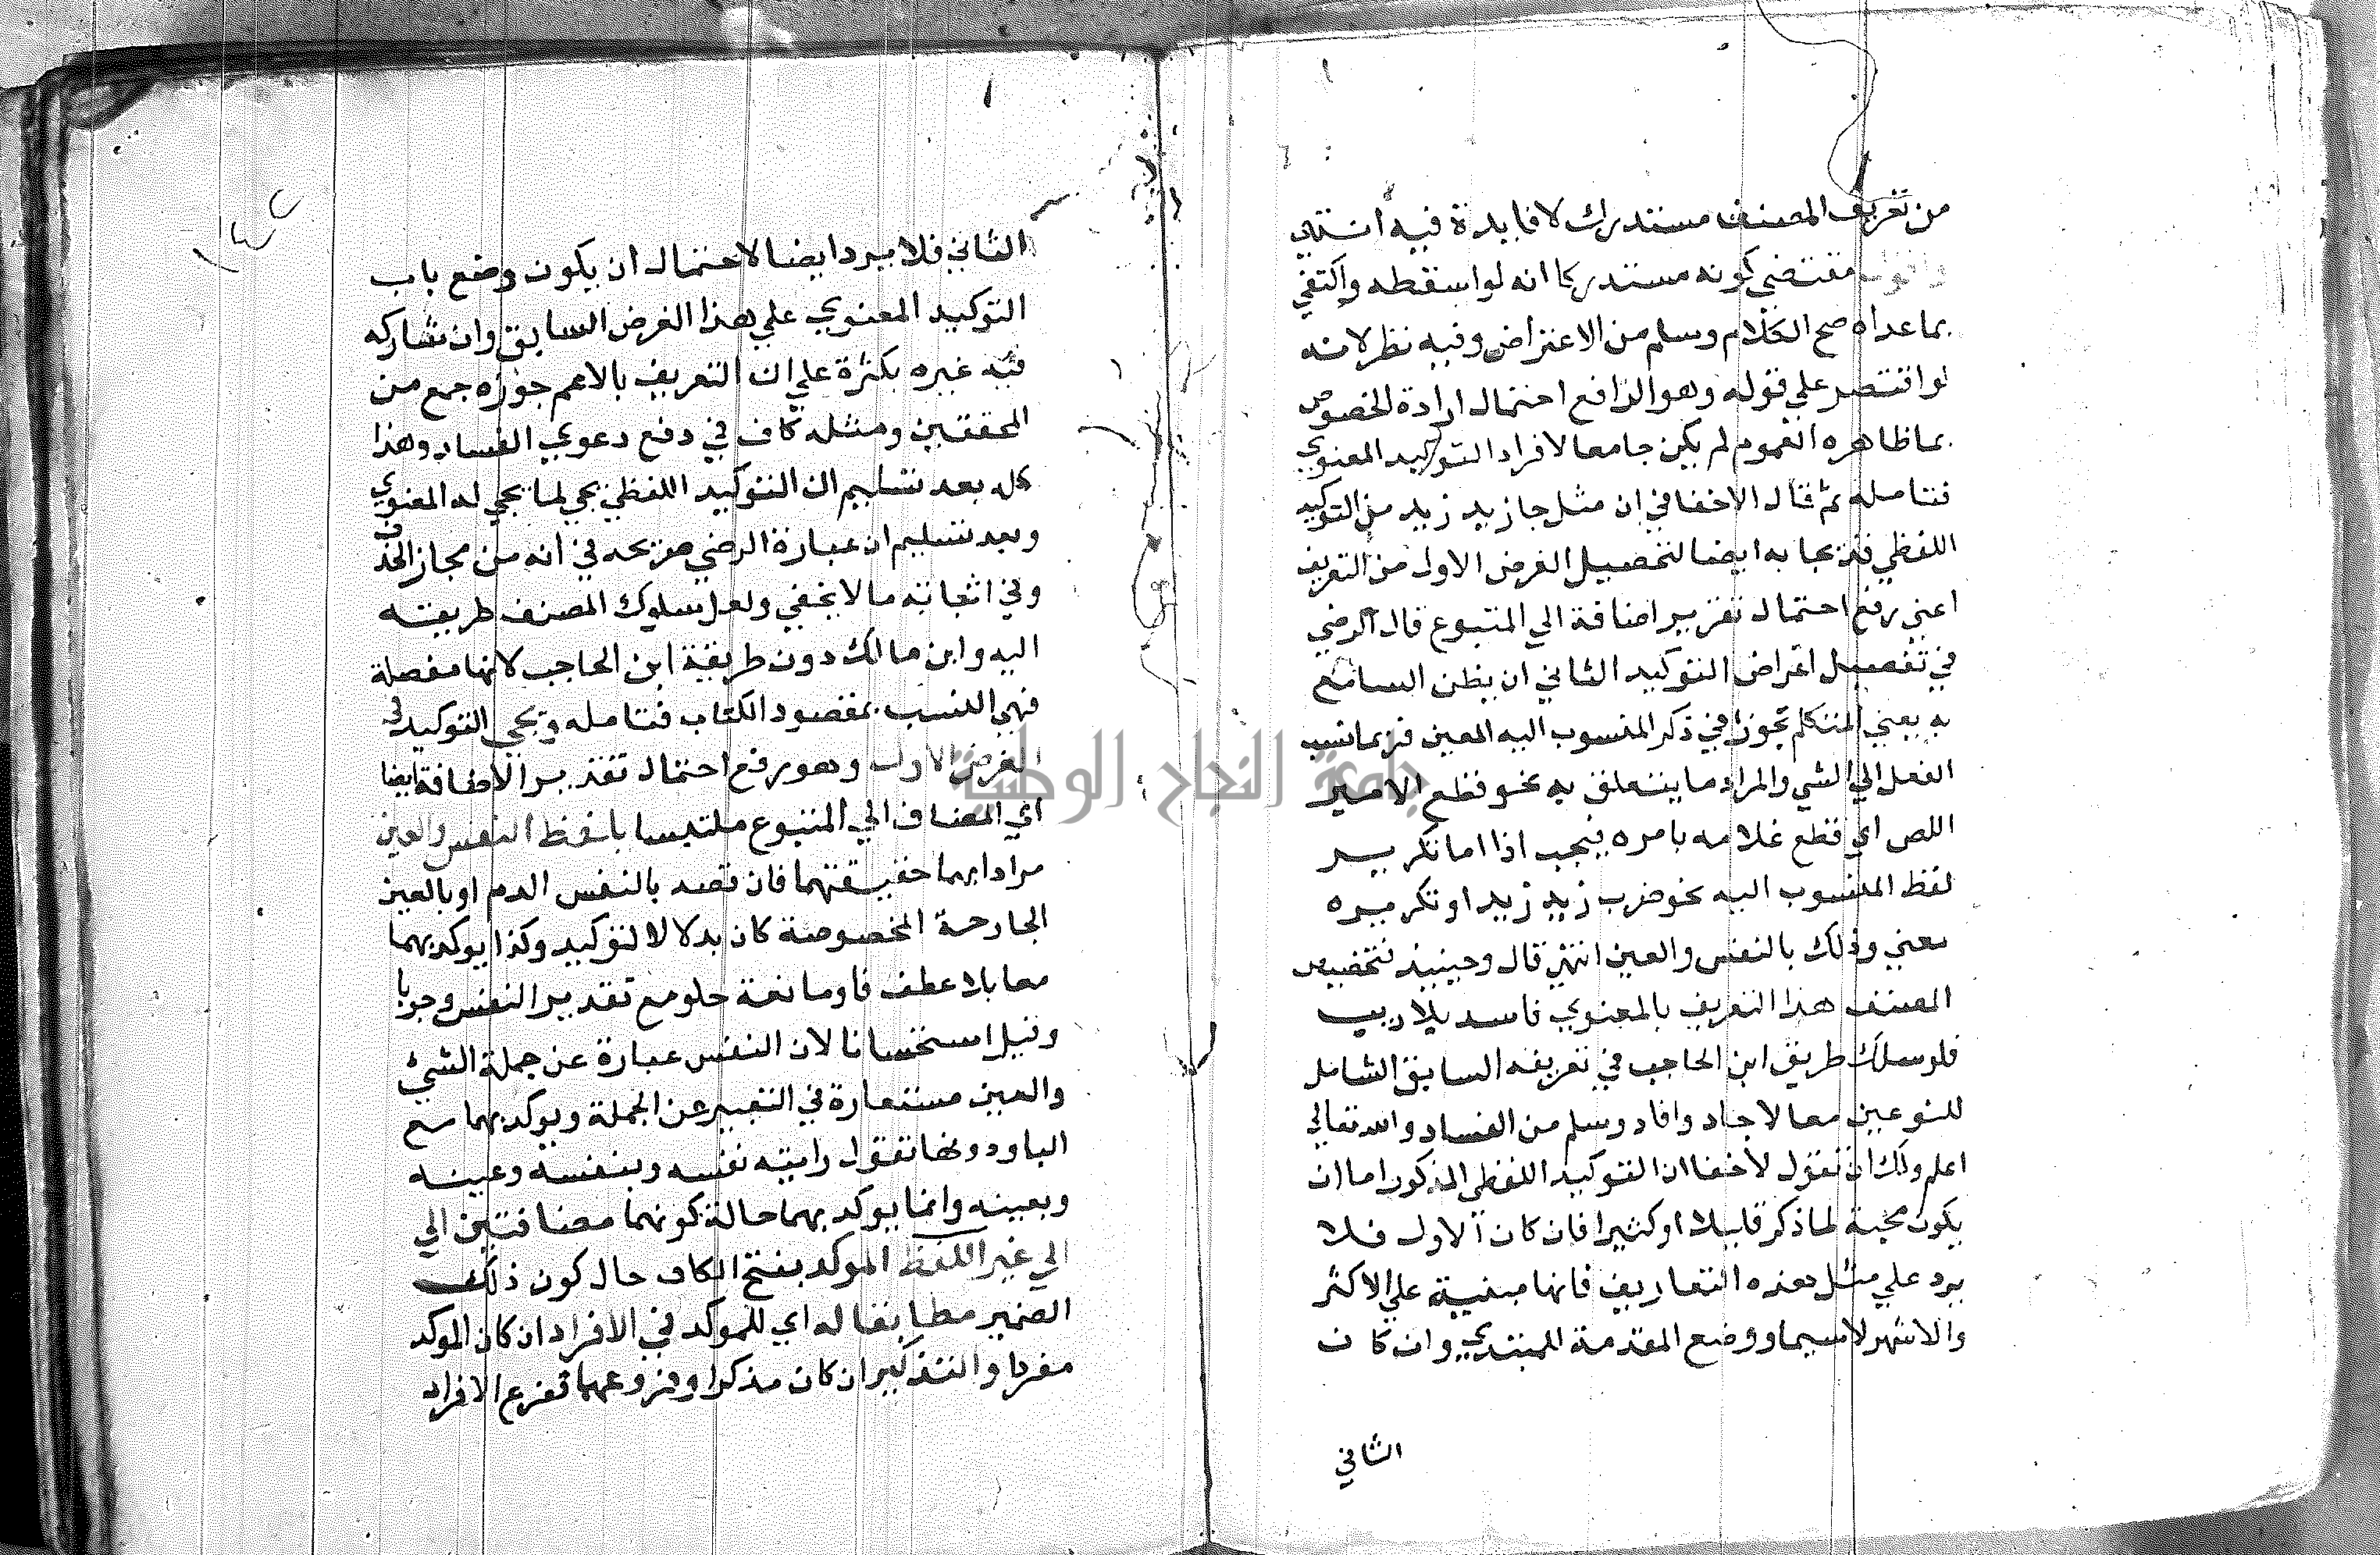 من تعريف المصنف مستدرك لا فايدة فيه انتهي
مقتضي كونه مستدركا انه لو اسقطه واكتفي
بما عداه صح الكلام وسلم من الاعتراض وفيه نظر لانه
لو اقتصر علي قوله وهو الرافع احتمال ارادة الخصوص
بما ظاهره العموم لم يكن جامعا لافراد التوكيد المعنوي
فتامله ثم قال لاخفا في ان مثل جا زيد زيد من التوكيد
اللفظي قد يجا به ايضا لتحصيل الغرض الاول من التعريف
اعني رفع احتمال تقرير اضافة الي المتبوع قال الرضي
في تفصيل اغراض التوكيد الثاني ان يظن السامع
به يعني المتكلم تجوزا في ذكر المنسوب اليه المعين فربما نسب
الفعل الي الشي والمراد ما يتعلق به نحو قطع الامير
اللص اي قطع غلامه بامره فيجب اذا اما تكرير
لفظ المنسوب اليه نحو ضرب زيد زيد او تكريره
معني وذلك بالنفس والعين انتهي قال وحينيذ فتخصيص
المصنف هذا التعريف بالمعنوي فاسد بلا ريب
فلو سلك طريق ابن الحاجب في تعريفه السابق الشامل
للنوعين معا لاجاد وافاد وسلم من الفساد والله تعالي
اعلم ولك ان تقول لاخفا ان التوكيد اللفظي المذكور اما ان
يكون مجيه لما ذكر قليلا او كثيرا فان كان الاول فلا
يرد علي مثل هذه التعاريف فانها مبنية علي الاكثر
والاشهر لاسيما ووضع المقدمة للمبتدي وان كان
الثاني
الثاني فلا يرد ايضا لاحتمال ان يكون وضع باب
التوكيد المعنوي علي هذا الغرض السابق وان شاركه
فيه غيره بكثرة علي ان التعريف بالاعم جوزه جمع من
المحققين ومثله كاف في دفع دعوي الفساد وهذا
كل بعد تسليم ان التوكيد اللفظي يجي لما يجي له المعنوي
وبعد تسليم ان عبارة الرضي صريحه في انه من مجاز الحذف
وفي اثباته ما لا يخفي ولعل سلوك المصنف طريقته
اليه وابن مالك دون طريقة ابن الحاجب لانها مفصلة
فهي انسب بمقصود الكتاب فتامله ويجي التوكيد في
الغرض الاول وهو رفع احتمال تقدير الاضافة ايضا
اي المضاف الي المتبوع ملتبسا بلفظ النفس والعين
مرادا بهما حقيقتهما فان قصد بالنفس الدم او بالعين
الجارحة المخصوصة كان بدلا لا توكيد وكذا يوكد بهما
معا بلا عطف فاو مانعة خلو مع تقدير النفس وجوبا
وقيل استحسانا لان النفس عبارة عن جملة الشي
والعين مستعارة في التعبير عن الجملة ويوكد بهما مع
البا ودونها تقول رايته نفسه وبنفسه وعينه
وبعينه وانما يوكد بهما حالة كونهما مضافتين الي
الي غير اللفظ الموكد بفتح الكاف حال كون ذلك
الضمير مطابقا له اي للموكد في الافراد ان كان الموكد
مفردا والتذكير ان كان مذكرا وفروعهما تفرع الافراد
جامعة النجاح الوطنية